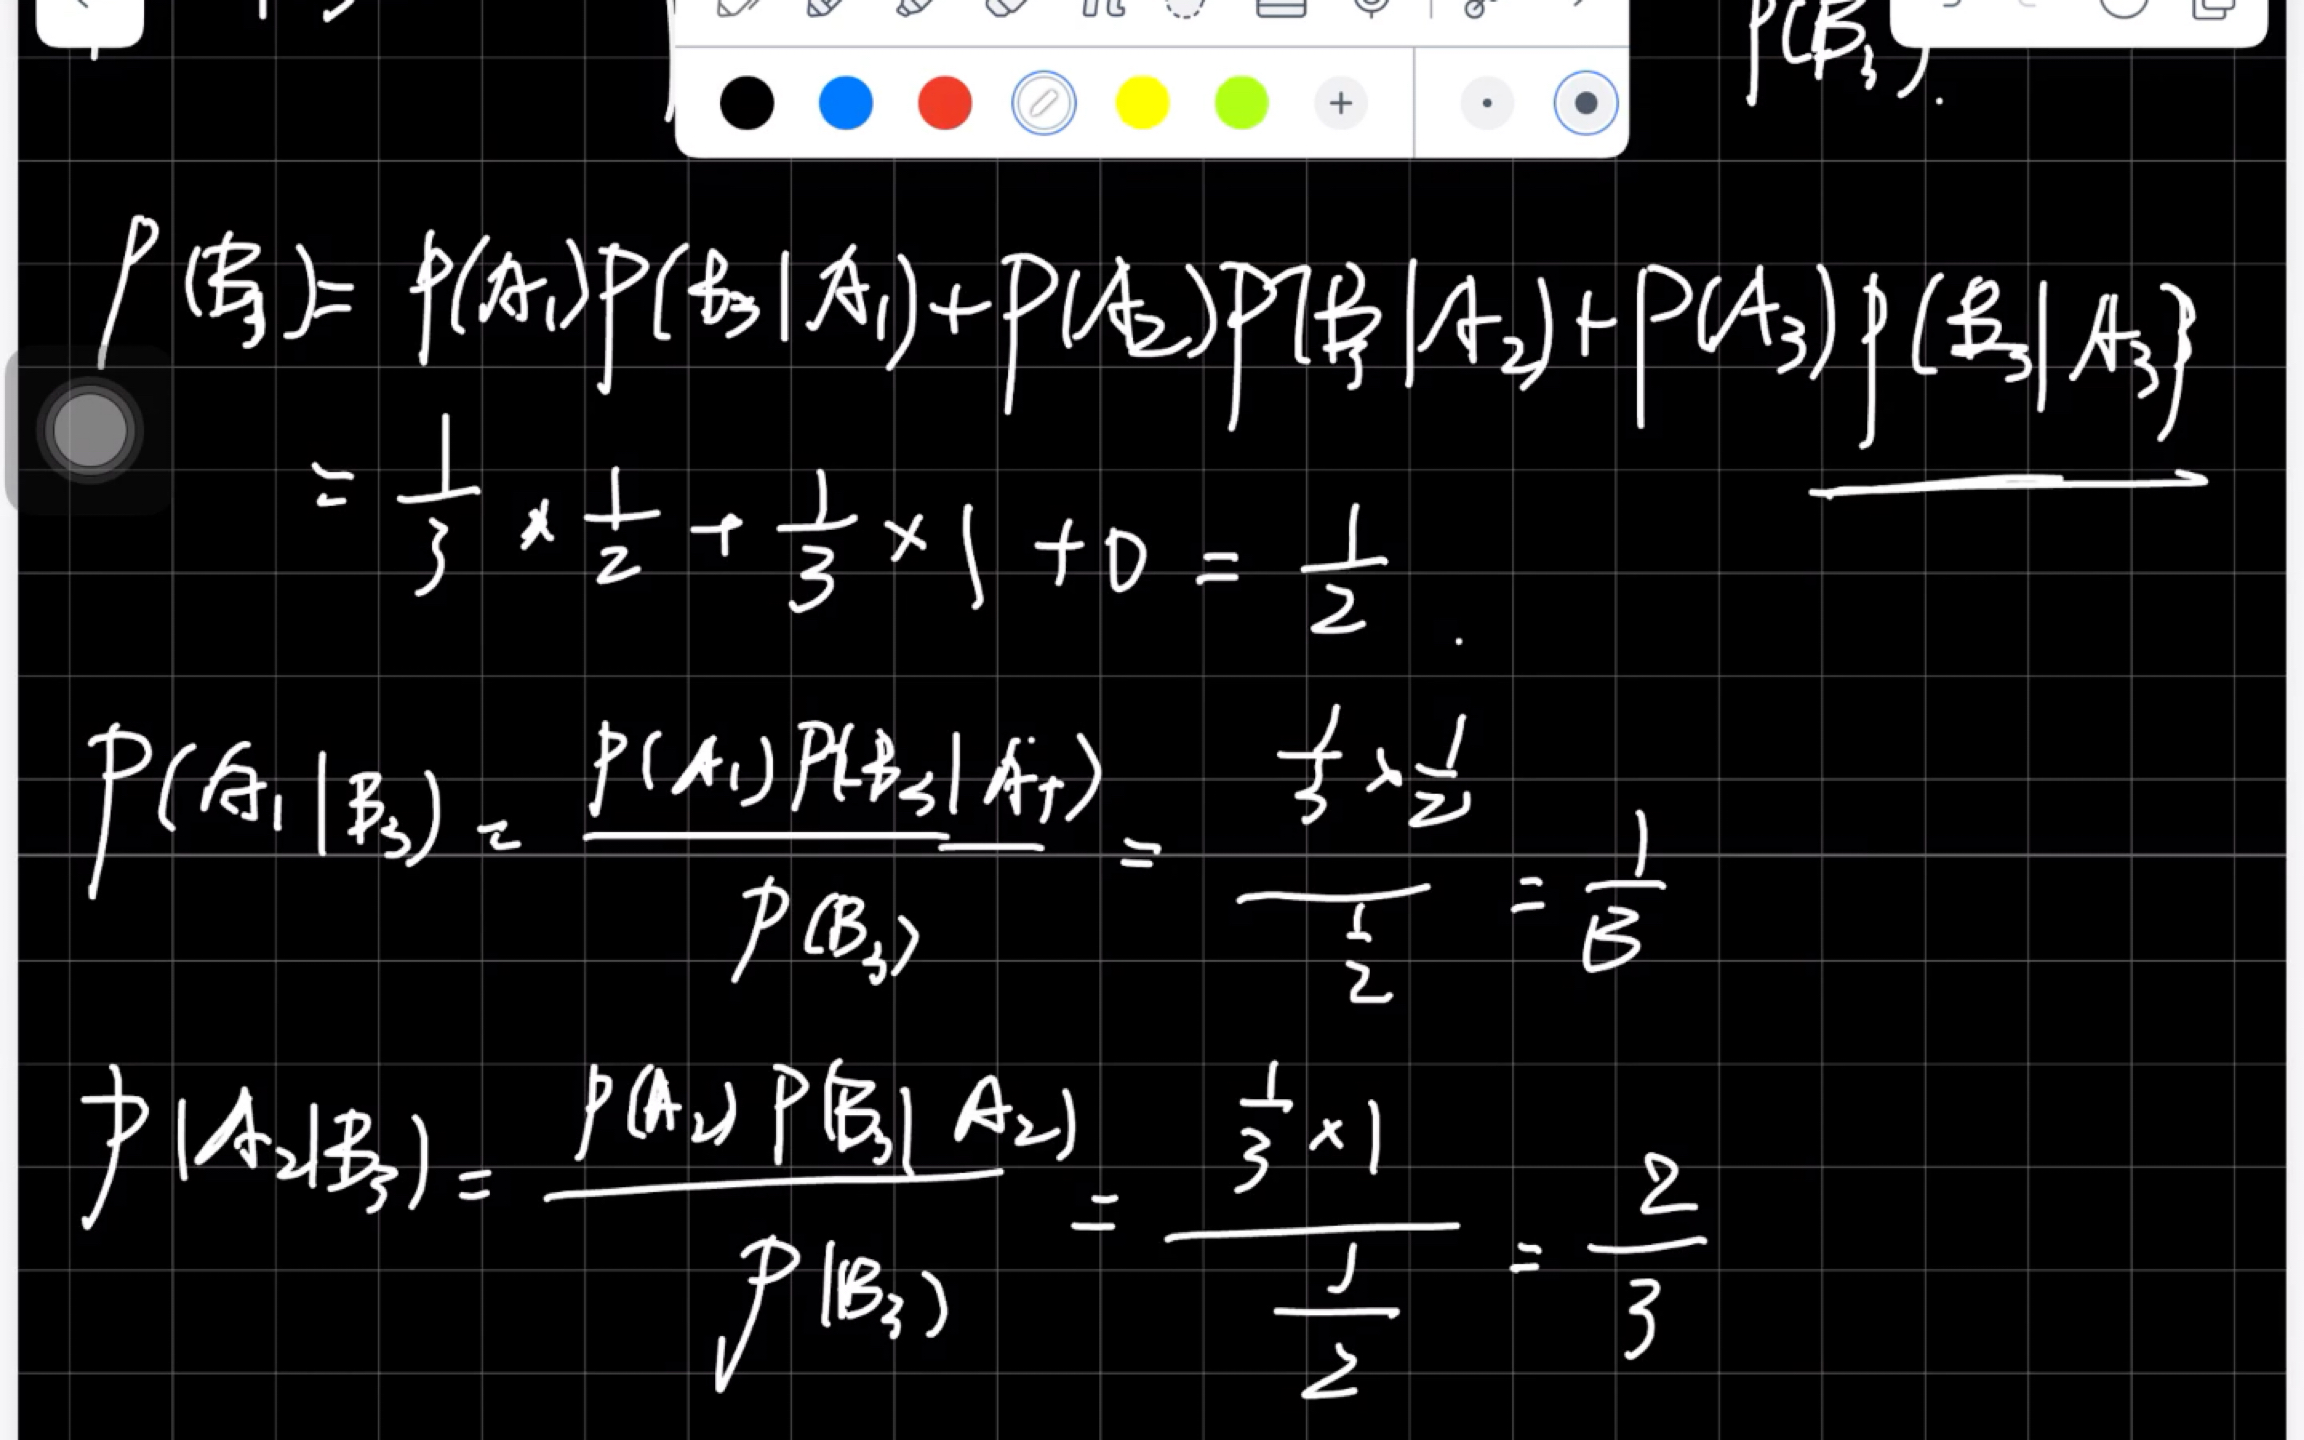 P(B₃).
P(B₃) = P(A₁)P(B₃|A₁) + P(A₂)P(B₃|A₂) + P(A₃)P(B₃|A₃)
= 1/3 × 1/2 + 1/3 × 1 + 0 = 1/2 .
P(A₁|B₃) = P(A₁)P(B₃|A₁) / P(B₃) = (1/3 × 1/2) / (1/2) = 1/3
P(A₂|B₃) = P(A₂)P(B₃|A₂) / P(B₃) = (1/3 × 1) / (1/2) = 2/3